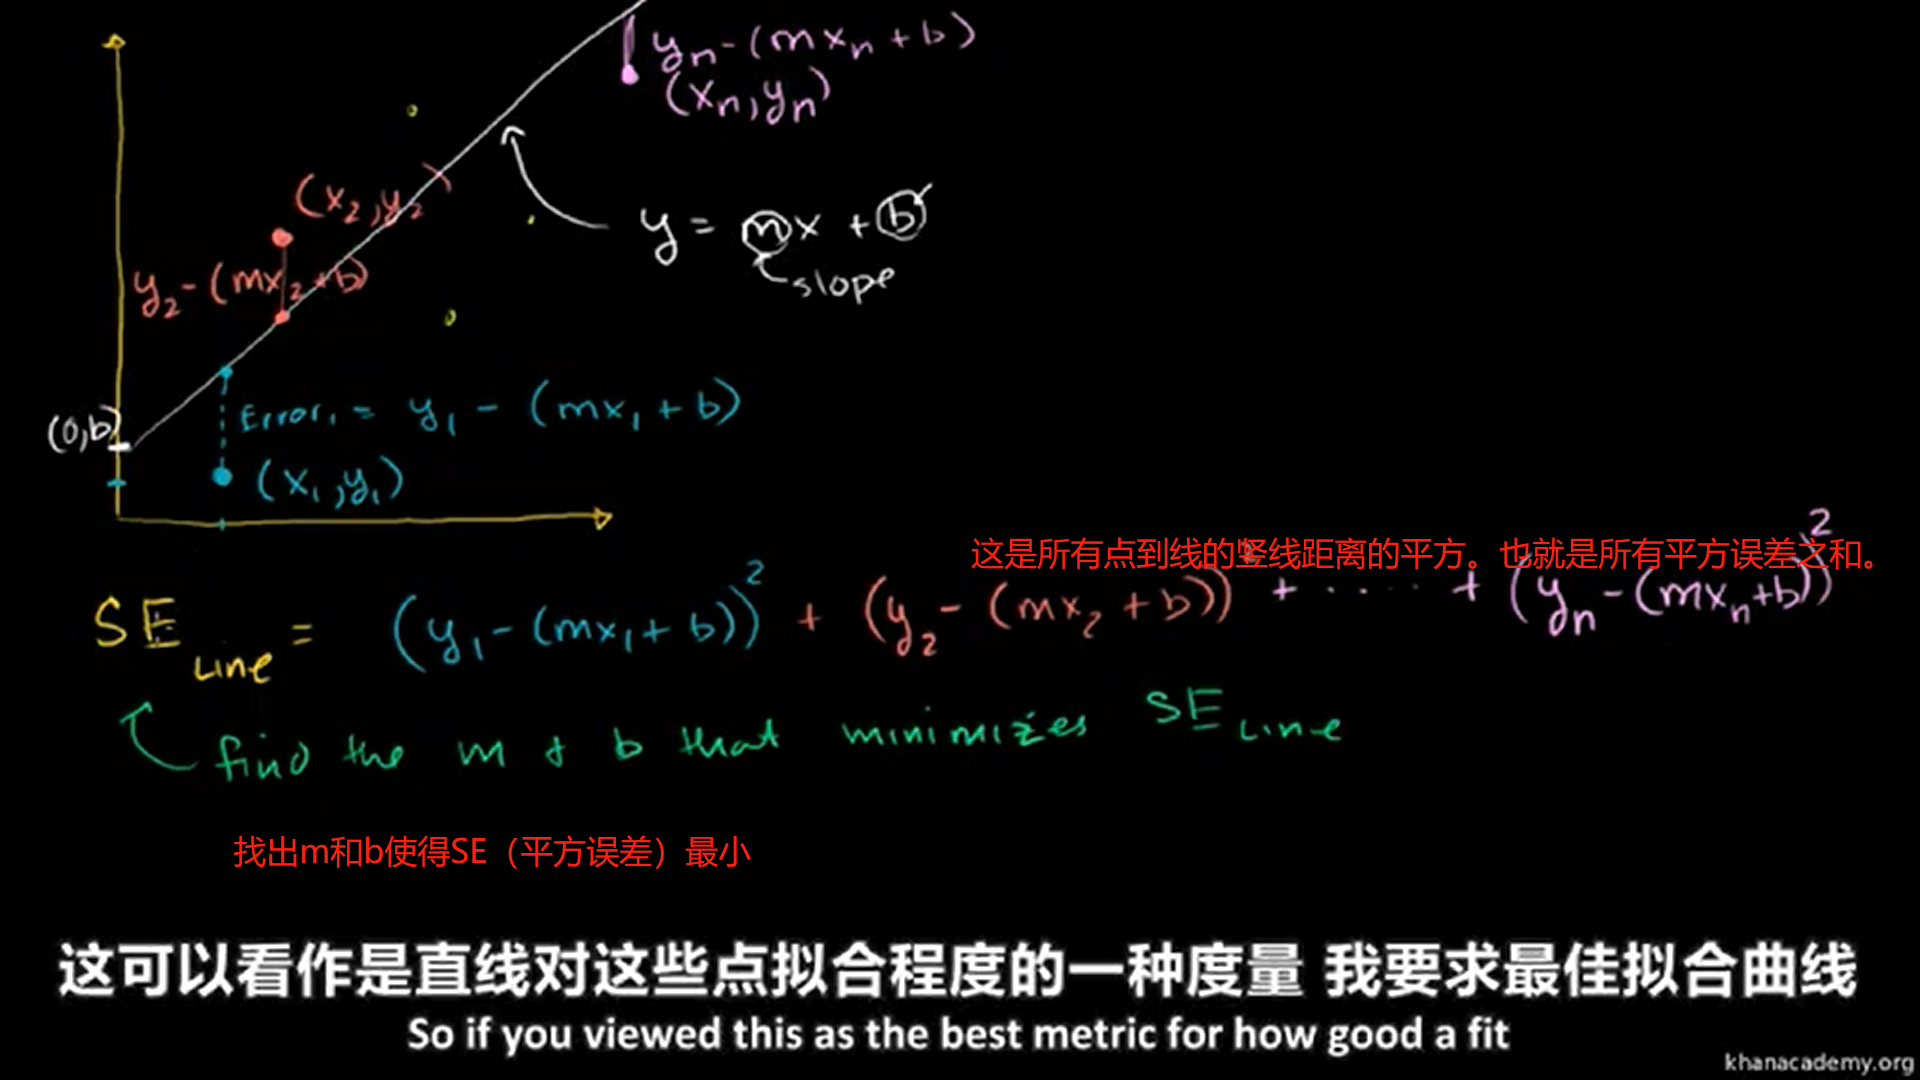 yₙ-(mxₙ+b)
(xₙ,yₙ)
(x₂,y₂)
y = mx + b
slope
y₂-(mx₂+b)
(0,b)
Error₁ = y₁ - (mx₁ + b)
(x₁,y₁)
这是所有点到线的竖线距离的平方。也就是所有平方误差之和。
SE Line = (y₁-(mx₁+b))² + (y₂-(mx₂+b))² + ····· + (yₙ-(mxₙ+b))²
find the m & b that minimizes SE Line
找出m和b使得SE（平方误差）最小
这可以看作是直线对这些点拟合程度的一种度量 我要求最佳拟合曲线
So if you viewed this as the best metric for how good a fit
khanacademy.org